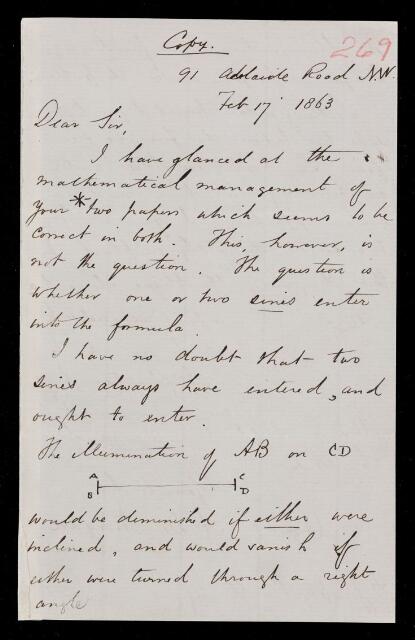 Copy.
269
91 Adelaide Road N.W.
Feb 17 1863
Dear Sir,
I have glanced at the
mathematical management of
your * two papers which seems to be
correct in both. This, however, is
not the question. The question is
whether one or two sines enter
into the formula.
I have no doubt that two
sines always have entered, and
ought to enter.
The illumination of AB on CD
A C
B D
would be diminished if either were
inclined, and would vanish if
either were turned through a right
angle